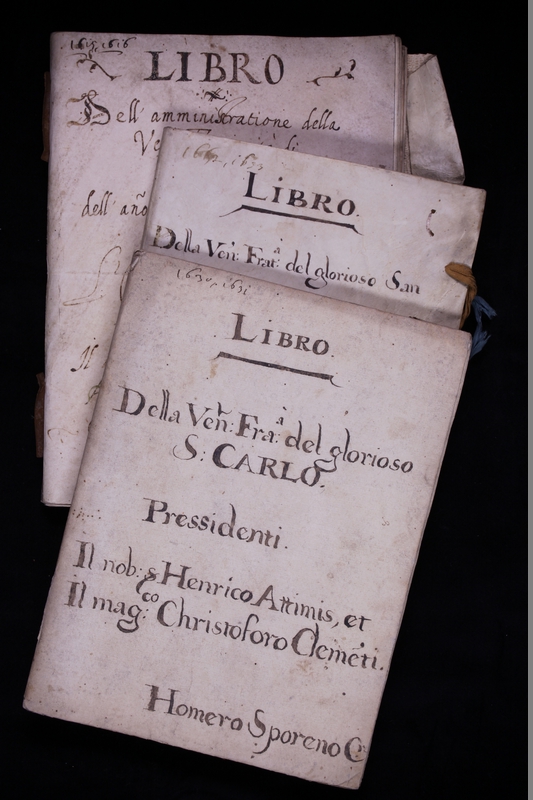 1615, 1616
LIBRO
Dell' amministratione della
dell' año
Il
LiBRO
Della Ven: Fra:ᵃ del glorioso San
1630, 1631
LIBRO
Della Veñ: Fra:ᵃ del glorioso
S: CARLO.
Pressidenti.
Il nob: s Henrico Attimis, et
Il mag:ᶜᵒ Christoforo Clemēti.
Homero Sporeno